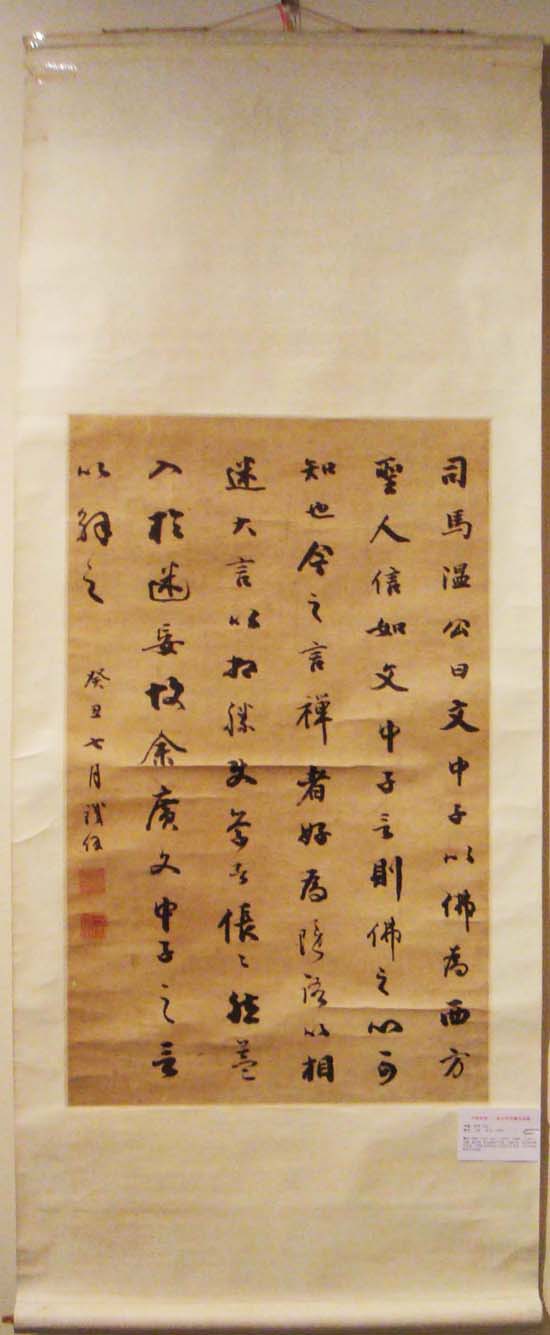 司馬温公曰文中子以佛為西方
聖人信如文中子言則佛之心可
知也今之言禪者好為隱語以相
迷大言以相勝使學者倀〻然益
入於迷妄故余廣文中子之言
以解之
癸丑七月